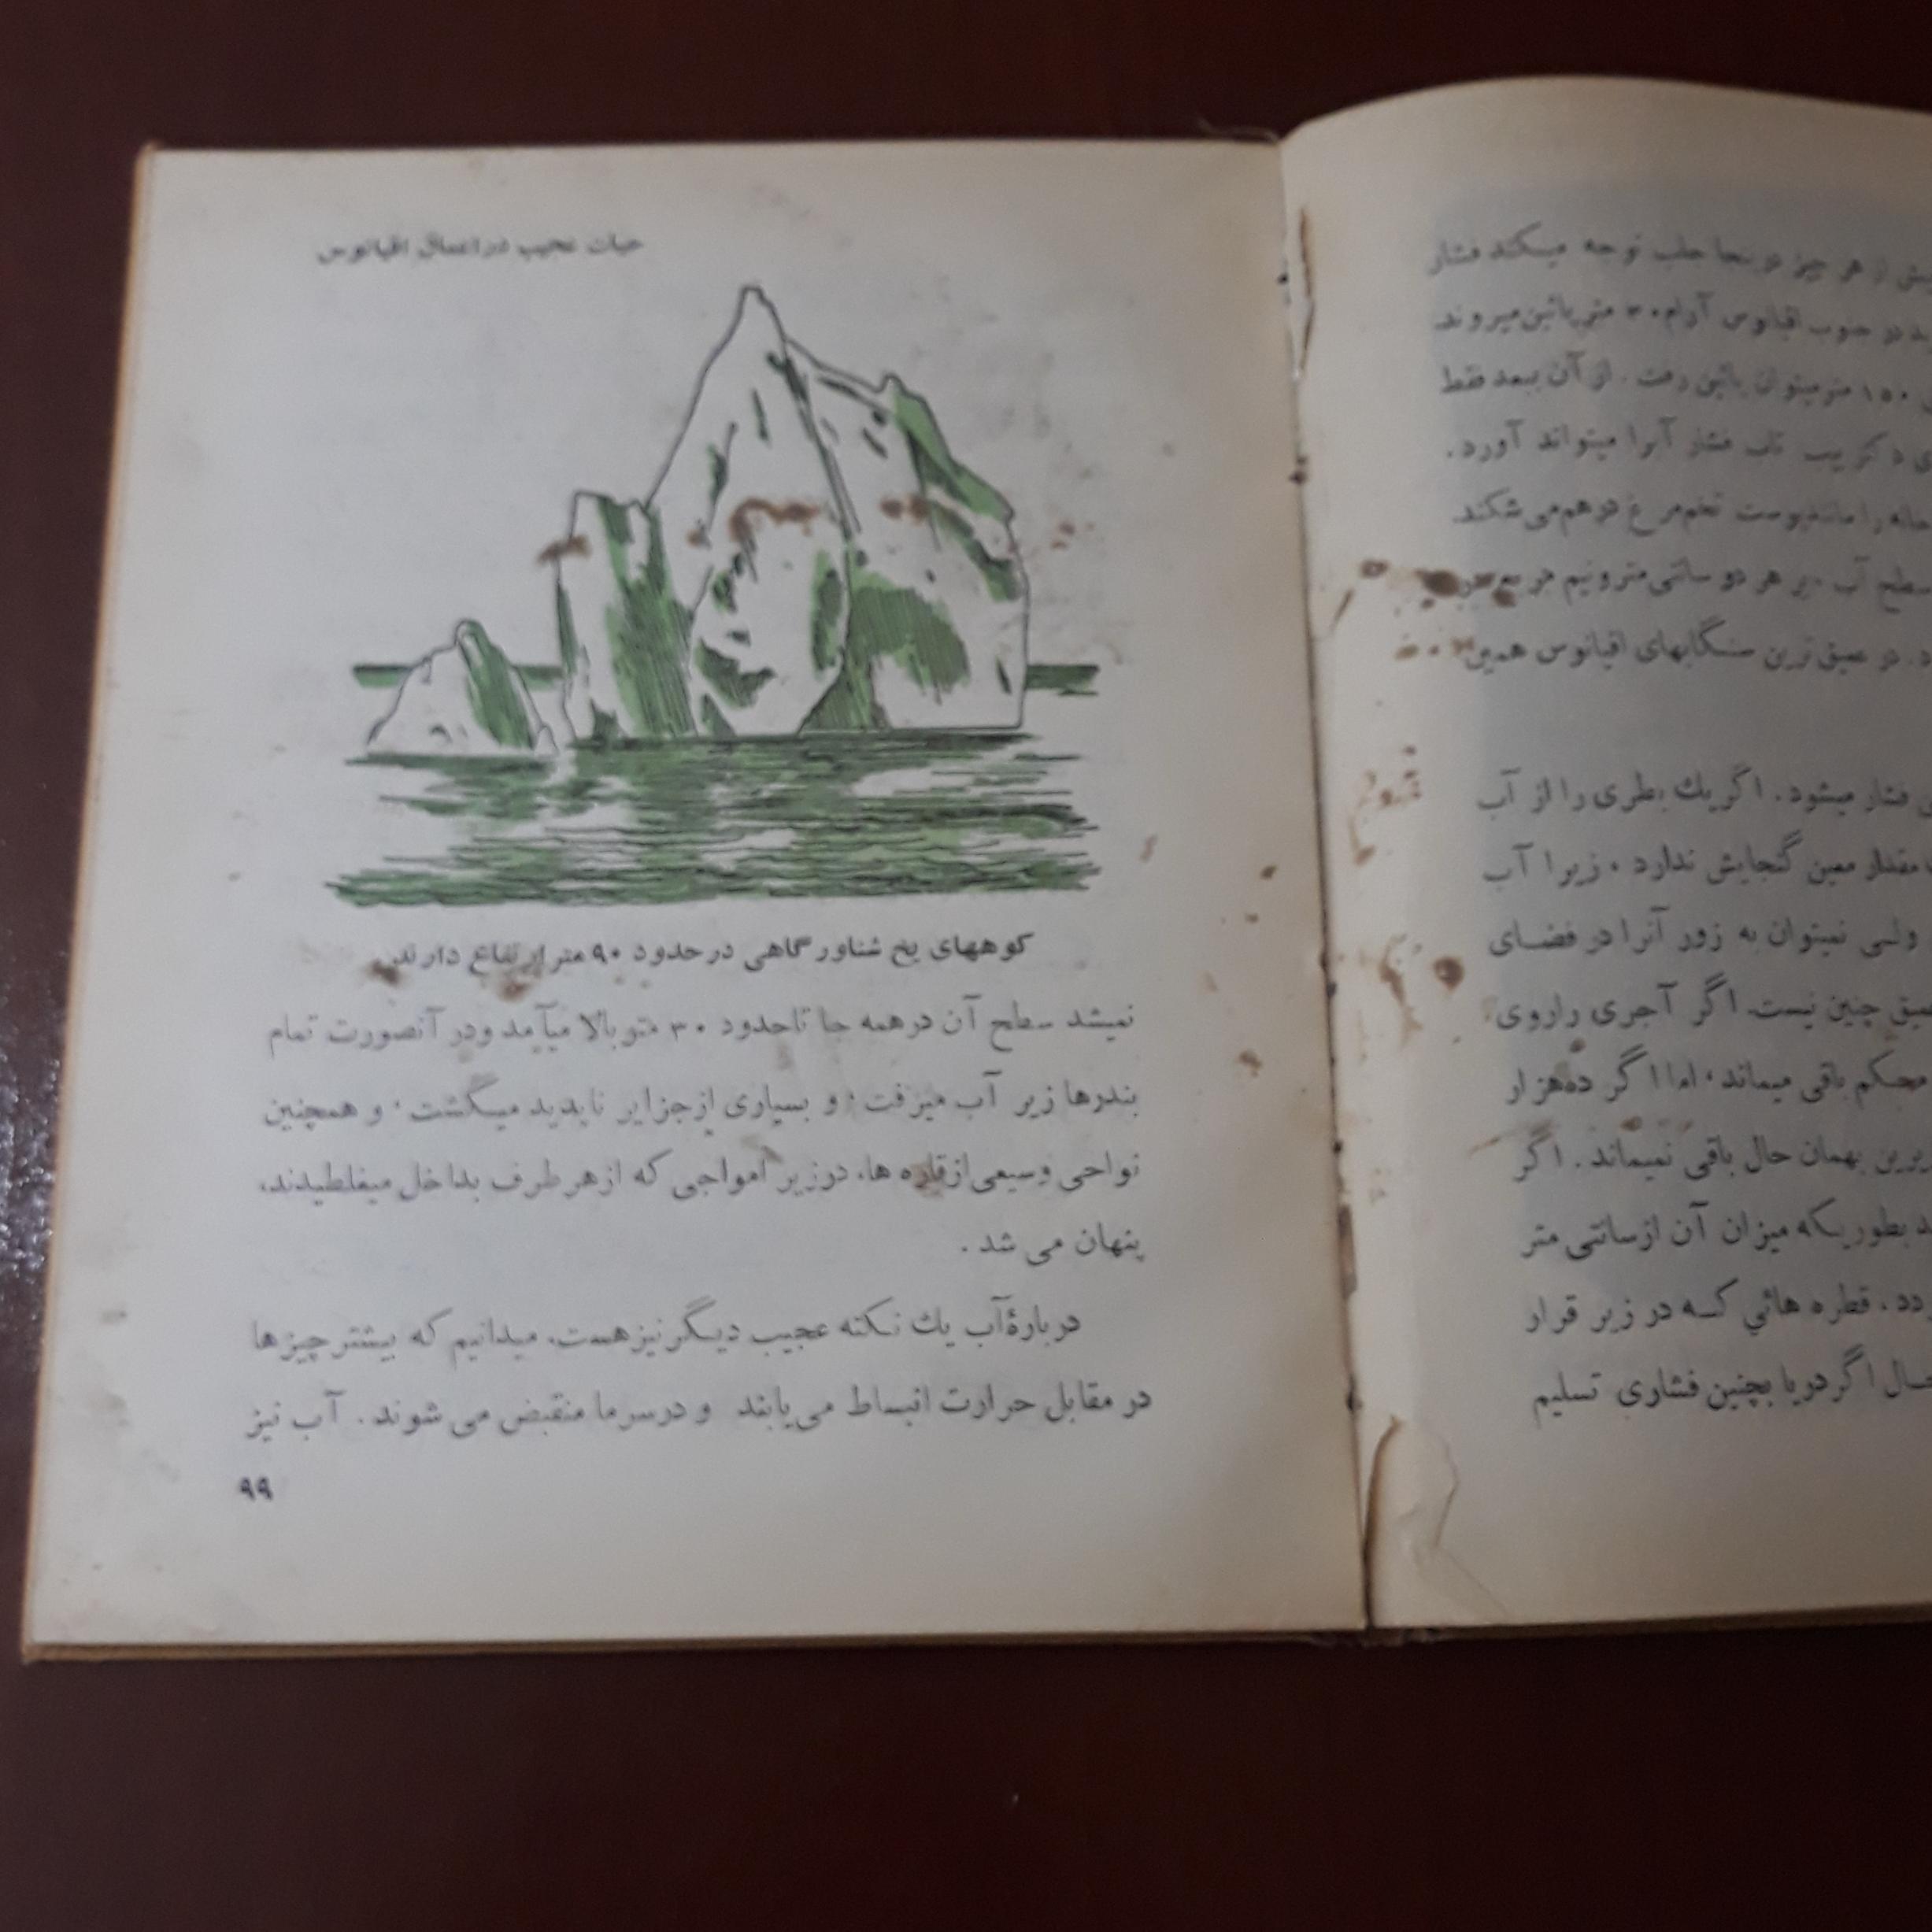 بیش از هر چیز در اینجا جلب توجه میکند فشار
در جنوب اقیانوس آرام ۳۰ متر پائین میروند
۱۵۰ متر میتوان پائین رفت. از آن ببعد فقط
تاب فشار آنرا میتواند آورد.
را مانند پوست تخم مرغ درهم می شکند
سطح آب بر هر دو سانتی متر و نیم مربع در
در عمیق ترین سنگابهای اقیانوس همین
فشار میشود. اگر یك بطری را از آب
مقدار معین گنجایش ندارد، زیرا آب
ولی نمیتوان به زور آنرا در فضای
چنین نیست. اگر آجری را روی
محکم باقی میماند، اما اگر ده هزار
زیرین بهمان حال باقی نمیماند. اگر
بطوریکه میزان آن از سانتی متر
قطره هائی کـه در زیر قرار
حال اگر دریا بچنین فشاری تسلیم
حیات عجیب در اعماق اقیانوس
کوههای یخ شناور گاهی در حدود ۹۰ متر ارتفاع دارند.
نمیشد سطح آن درهمه جا تاحدود ۳۰ متر بالا میآمد و در آنصورت تمام
بندرها زیر آب میرفت، و بسیاری از جزایر ناپدید میگشت، و همچنین
نواحی وسیعی از قاره ها، در زیر امواجی که از هر طرف بداخل میغلطیدند،
پنهان می شد.
دربارۀ آب یك نکته عجیب دیگر نیز هست. میدانیم که بیشتر چیزها
در مقابل حرارت انبساط می یابند و در سرما منقبض می شوند. آب نیز
۹۹